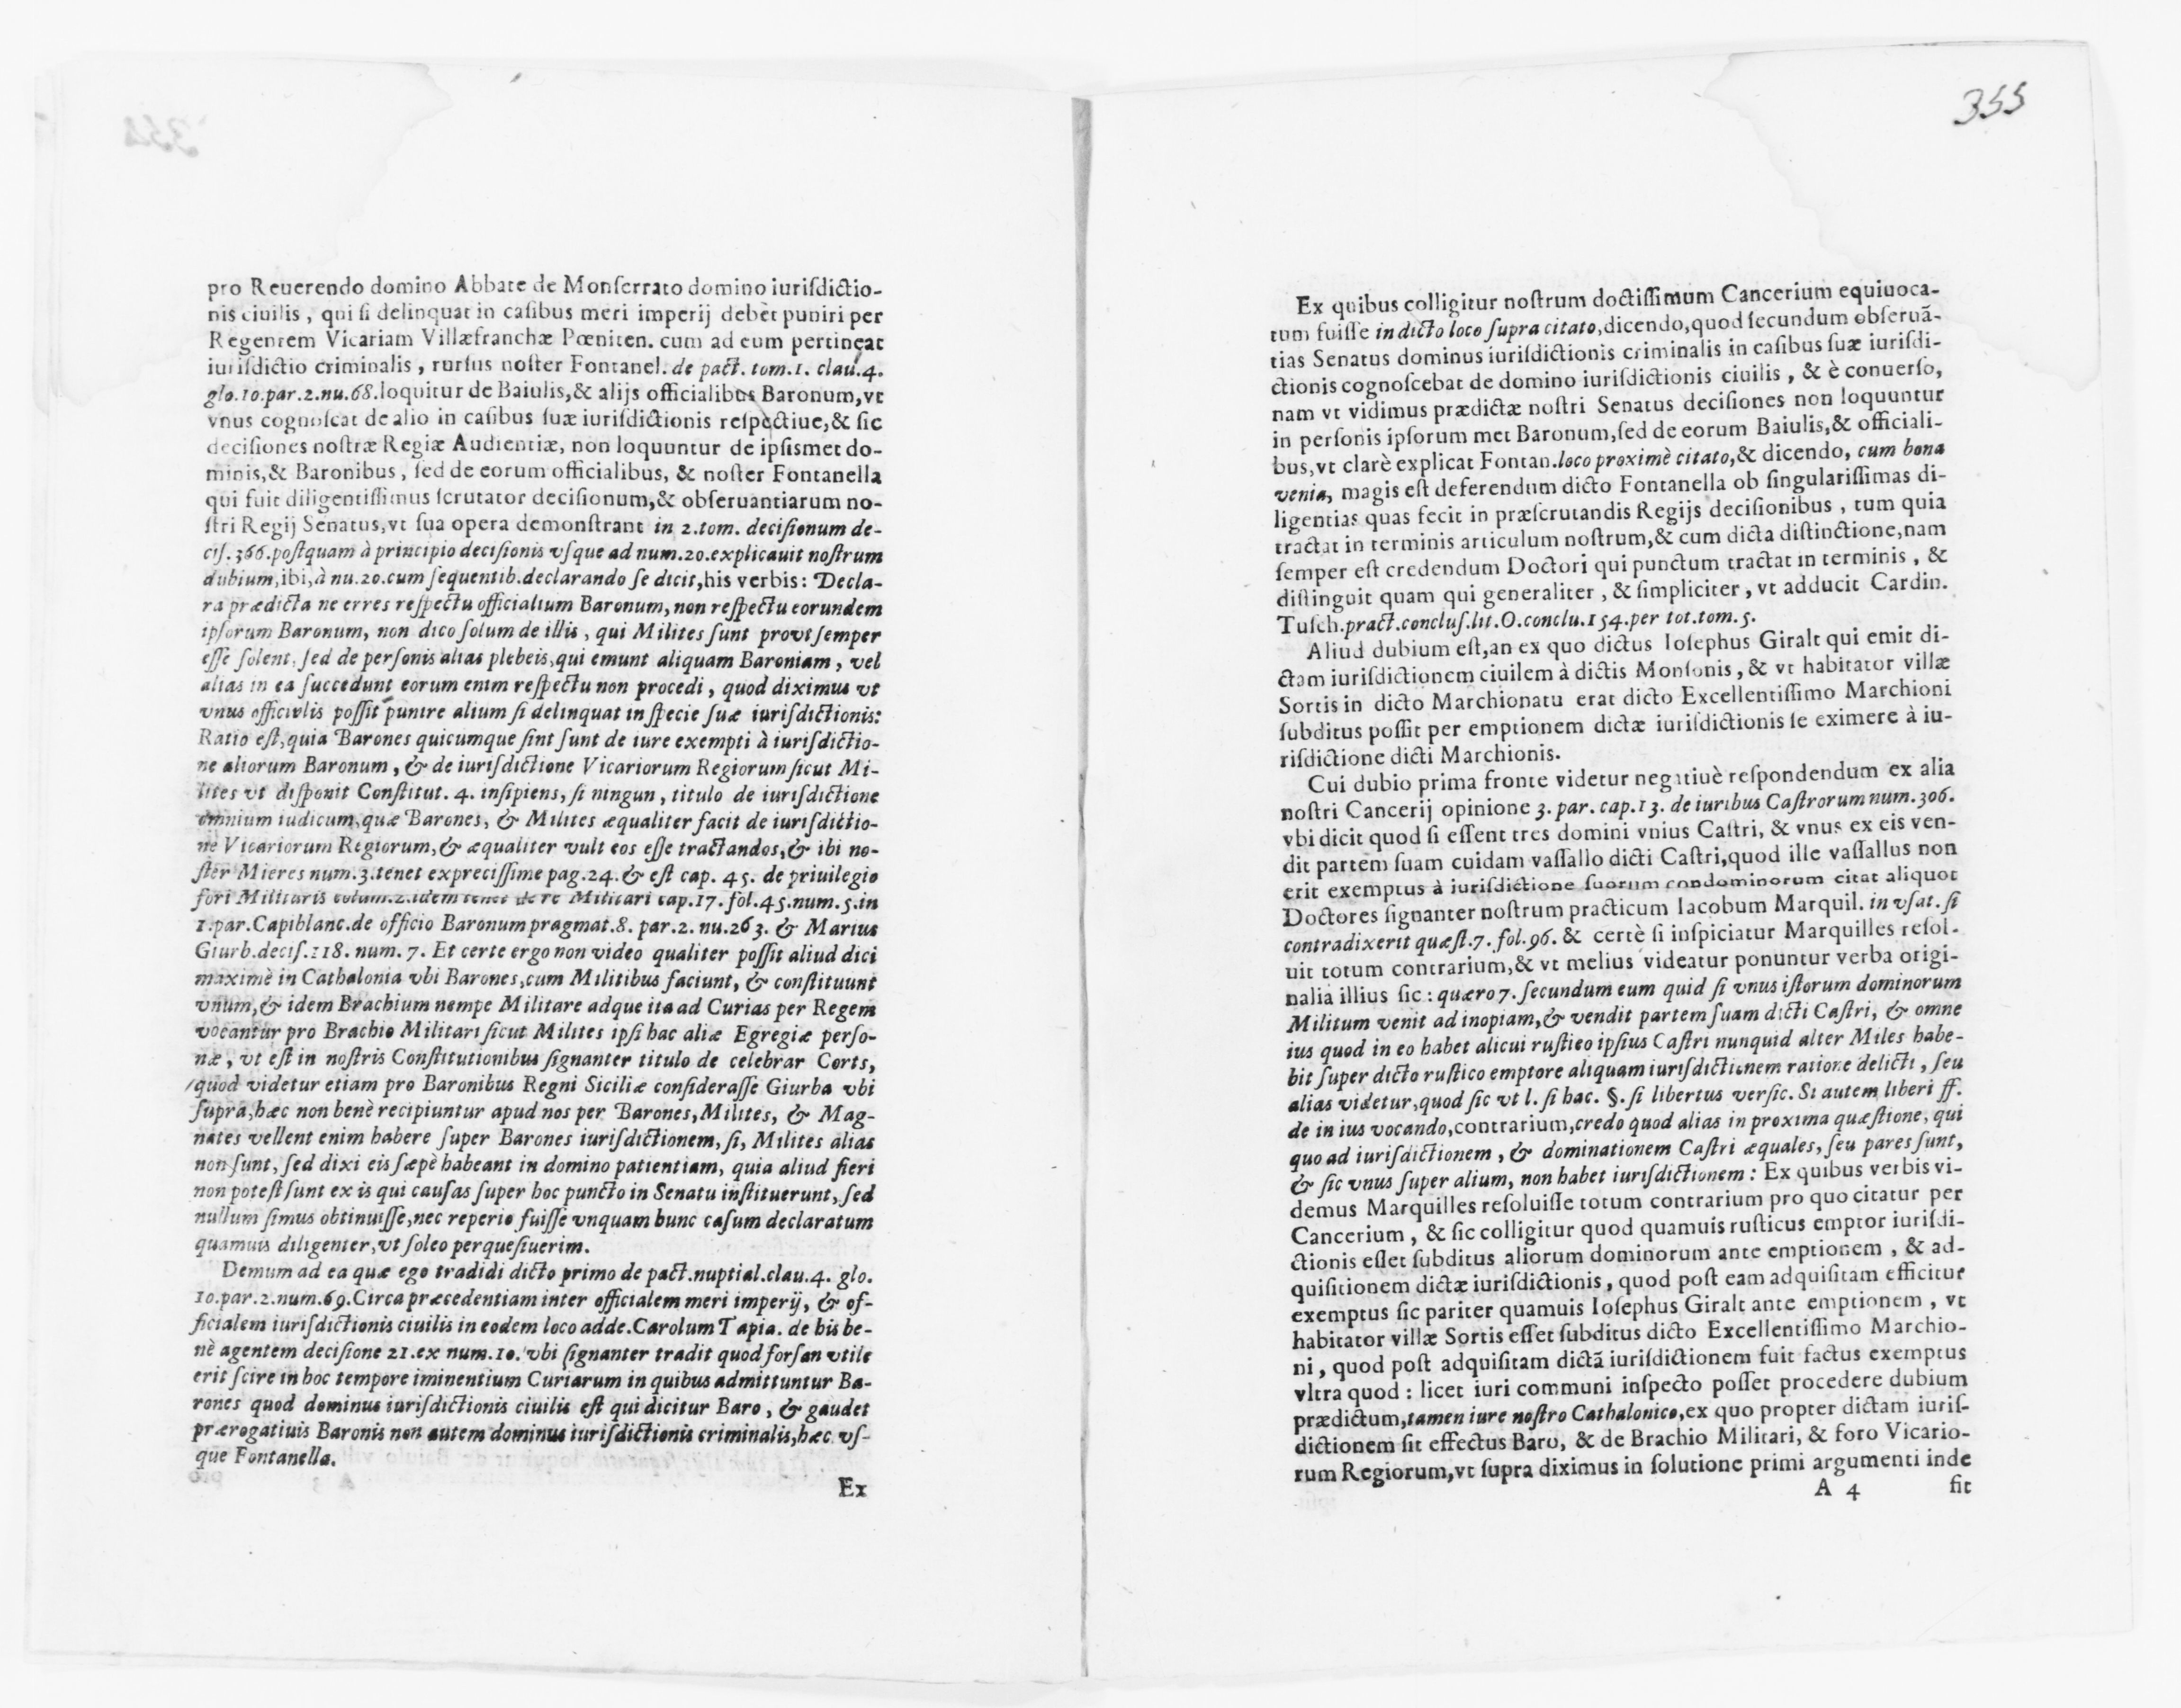 pro Reuerendo domino Abbate de Monſerrato domino iuriſdictio-
nis ciuilis, qui ſi delinquat in caſibus meri imperij debèt puniri per
Regentem Vicariam Villæfranchæ Pœniten. cum ad eum pertineat
iuriſdictio criminalis, rurſus noſter Fontanel. de pact. tom.1. clau.4.
glo.10.par.2.nu.68.loquitur de Baiulis,& alijs officialibus Baronum,vt
vnus cognoſcat de alio in caſibus ſuæ iuriſdictionis reſpectiue,& ſic
deciſiones noſtræ Regiæ Audientiæ, non loquuntur de ipſismet do-
minis,& Baronibus, ſed de eorum officialibus, & noſter Fontanella
qui fuit diligentiſſimus ſcrutator deciſionum,& obſeruantiarum no-
ſtri Regij Senatus,vt ſua opera demonſtrant in 2.tom. deciſionum de-
ciſ.366.poſtquam à principio deciſionis vſque ad num.20.explicauit noſtrum
dubium,ibi,à nu.20.cum ſequentib.declarando ſe dicit,his verbis: Decla-
ra prædicta ne erres reſpectu officialium Baronum, non reſpectu eorundem
ipſorum Baronum, non dico ſolum de illis, qui Milites ſunt provt ſemper
eſſe ſolent, ſed de perſonis alias plebeis,qui emunt aliquam Baroniam, vel
alias in ea ſuccedunt eorum enim reſpectu non procedi, quod diximus vt
vnus officialis poſſit punire alium ſi delinquat in ſpecie ſuæ iuriſdictionis:
Ratio eſt,quia Barones quicumque ſint ſunt de iure exempti à iuriſdictio-
ne aliorum Baronum, & de iuriſdictione Vicariorum Regiorum ſicut Mi-
lites vt diſponit Conſtitut. 4. inſipiens, ſi ningun, titulo de iuriſdictione
omnium iudicum,quæ Barones, & Milites æqualiter facit de iuriſdictio-
ne Vicariorum Regiorum,& æqualiter vult eos eſſe tractandos,& ibi no-
ſter Mieres num.3.tenet expreciſſime pag.24.& eſt cap. 45. de priuilegio
fori Militaris colum.2.idem tenet de re Militari cap.17.fol.45.num.5.in
1.par.Capiblanc.de officio Baronum pragmat.8. par.2. nu.263. & Marius
Giurb.deciſ.118. num. 7. Et certe ergo non video qualiter poſſit aliud dici
maximè in Cathalonia vbi Barones,cum Militibus faciunt, & conſtituunt
vnum,& idem Brachium nempe Militare adque ita ad Curias per Regem
vocantur pro Brachio Militari ſicut Milites ipſi hac aliæ Egregiæ perſo-
næ, vt eſt in noſtris Conſtitutionibus ſignanter titulo de celebrar Corts,
quod videtur etiam pro Baronibus Regni Siciliæ conſideraſſe Giurba vbi
ſupra,hæc non benè recipiuntur apud nos per Barones, Milites, & Mag-
nates vellent enim habere ſuper Barones iuriſdictionem, ſi, Milites alias
non ſunt, ſed dixi eis ſæpè habeant in domino patientiam, quia aliud fieri
non poteſt ſunt ex is qui cauſas ſuper hoc puncto in Senatu inſtituerunt, ſed
nullum ſimus obtinuiſſe,nec reperio fuiſſe vnquam hunc caſum declaratum
quamuis diligenter,vt ſoleo perqueſiuerim.
Demum ad ea quæ ego tradidi dicto primo de pact.nuptial.clau.4. glo.
10.par.2.num.69.Circa præcedentiam inter officialem meri imperij, & of-
ficialem iuriſdictionis ciuilis in eodem loco adde.Carolum Tapia. de his be-
nè agentem deciſione 21.ex num.10. vbi ſignanter tradit quod forſan vtile
erit ſcire in hoc tempore iminentium Curiarum in quibus admittuntur Ba-
rones quod dominus iuriſdictionis ciuilis eſt qui dicitur Baro, & gaudet
prærogatiuis Baronis non autem dominus iuriſdictionis criminalis,hæc vſ-
que Fontanella.
Ex
355
Ex quibus colligitur noſtrum doctiſſimum Cancerium equiuoca-
tum fuiſſe in dicto loco ſupra citato,dicendo,quod ſecundum obſeruã-
tias Senatus dominus iuriſdictionis criminalis in caſibus ſuæ iuriſdi-
ctionis cognoſcebat de domino iuriſdictionis ciuilis, & è conuerſo,
nam vt vidimus prædictæ noſtri Senatus deciſiones non loquuntur
in perſonis ipſorum met Baronum,ſed de eorum Baiulis,& officiali-
bus,vt clarè explicat Fontan.loco proximè citato,& dicendo, cum bona
venia, magis eſt deferendum dicto Fontanella ob ſingulariſſimas di-
ligentias quas fecit in præſcrutandis Regijs deciſionibus, tum quia
tractat in terminis articulum noſtrum,& cum dicta diſtinctione,nam
ſemper eſt credendum Doctori qui punctum tractat in terminis, &
diſtinguit quam qui generaliter, & ſimpliciter, vt adducit Cardin.
Tuſch.pract.concluſ.lit.O.conclu.154.per tot.tom.5.
Aliud dubium eſt,an ex quo dictus Ioſephus Giralt qui emit di-
ctam iuriſdictionem ciuilem à dictis Monſonis, & vt habitator villæ
Sortis in dicto Marchionatu erat dicto Excellentiſſimo Marchioni
ſubditus poſſit per emptionem dictæ iuriſdictionis ſe eximere à iu-
riſdictione dicti Marchionis.
Cui dubio prima fronte videtur negatiuè reſpondendum ex alia
noſtri Cancerij opinione 3. par. cap.13. de iuribus Caſtrorum num.306.
vbi dicit quod ſi eſſent tres domini vnius Caſtri, & vnus ex eis ven-
dit partem ſuam cuidam vaſſallo dicti Caſtri,quod ille vaſſallus non
erit exemptus à iuriſdictione ſuorum condominorum citat aliquot
Doctores ſignanter noſtrum practicum Iacobum Marquil. in vſat. ſi
contradixerit quæſt.7. fol.96. & certè ſi inſpiciatur Marquilles reſol-
uit totum contrarium,& vt melius videatur ponuntur verba origi-
nalia illius ſic: quæro 7. ſecundum eum quid ſi vnus iſtorum dominorum
Militum venit ad inopiam,& vendit partem ſuam dicti Caſtri, & omne
ius quod in eo habet alicui ruſtico ipſius Caſtri nunquid alter Miles habe-
bit ſuper dicto ruſtico emptore aliquam iuriſdictionem ratione delicti, ſeu
alias videtur,quod ſic vt l. ſi hac. §. ſi libertus verſic. Si autem liberi ff.
de in ius vocando,contrarium,credo quod alias in proxima quæſtione, qui
quo ad iuriſdictionem, & dominationem Caſtri æquales, ſeu pares ſunt,
& ſic vnus ſuper alium, non habet iuriſdictionem: Ex quibus verbis vi-
demus Marquilles reſoluiſſe totum contrarium pro quo citatur per
Cancerium, & ſic colligitur quod quamuis ruſticus emptor iuriſdi-
ctionis eſſet ſubditus aliorum dominorum ante emptionem, & ad-
quiſitionem dictæ iuriſdictionis, quod poſt eam adquiſitam efficitur
exemptus ſic pariter quamuis Ioſephus Giralt ante emptionem, vt
habitator villæ Sortis eſſet ſubditus dicto Excellentiſſimo Marchio-
ni, quod poſt adquiſitam dictã iuriſdictionem fuit factus exemptus
vltra quod: licet iuri communi inſpecto poſſet procedere dubium
prædictum,tamen iure noſtro Cathalonico,ex quo propter dictam iuriſ-
dictionem ſit effectus Baro, & de Brachio Militari, & foro Vicario-
rum Regiorum,vt ſupra diximus in ſolutione primi argumenti inde
A 4 fit